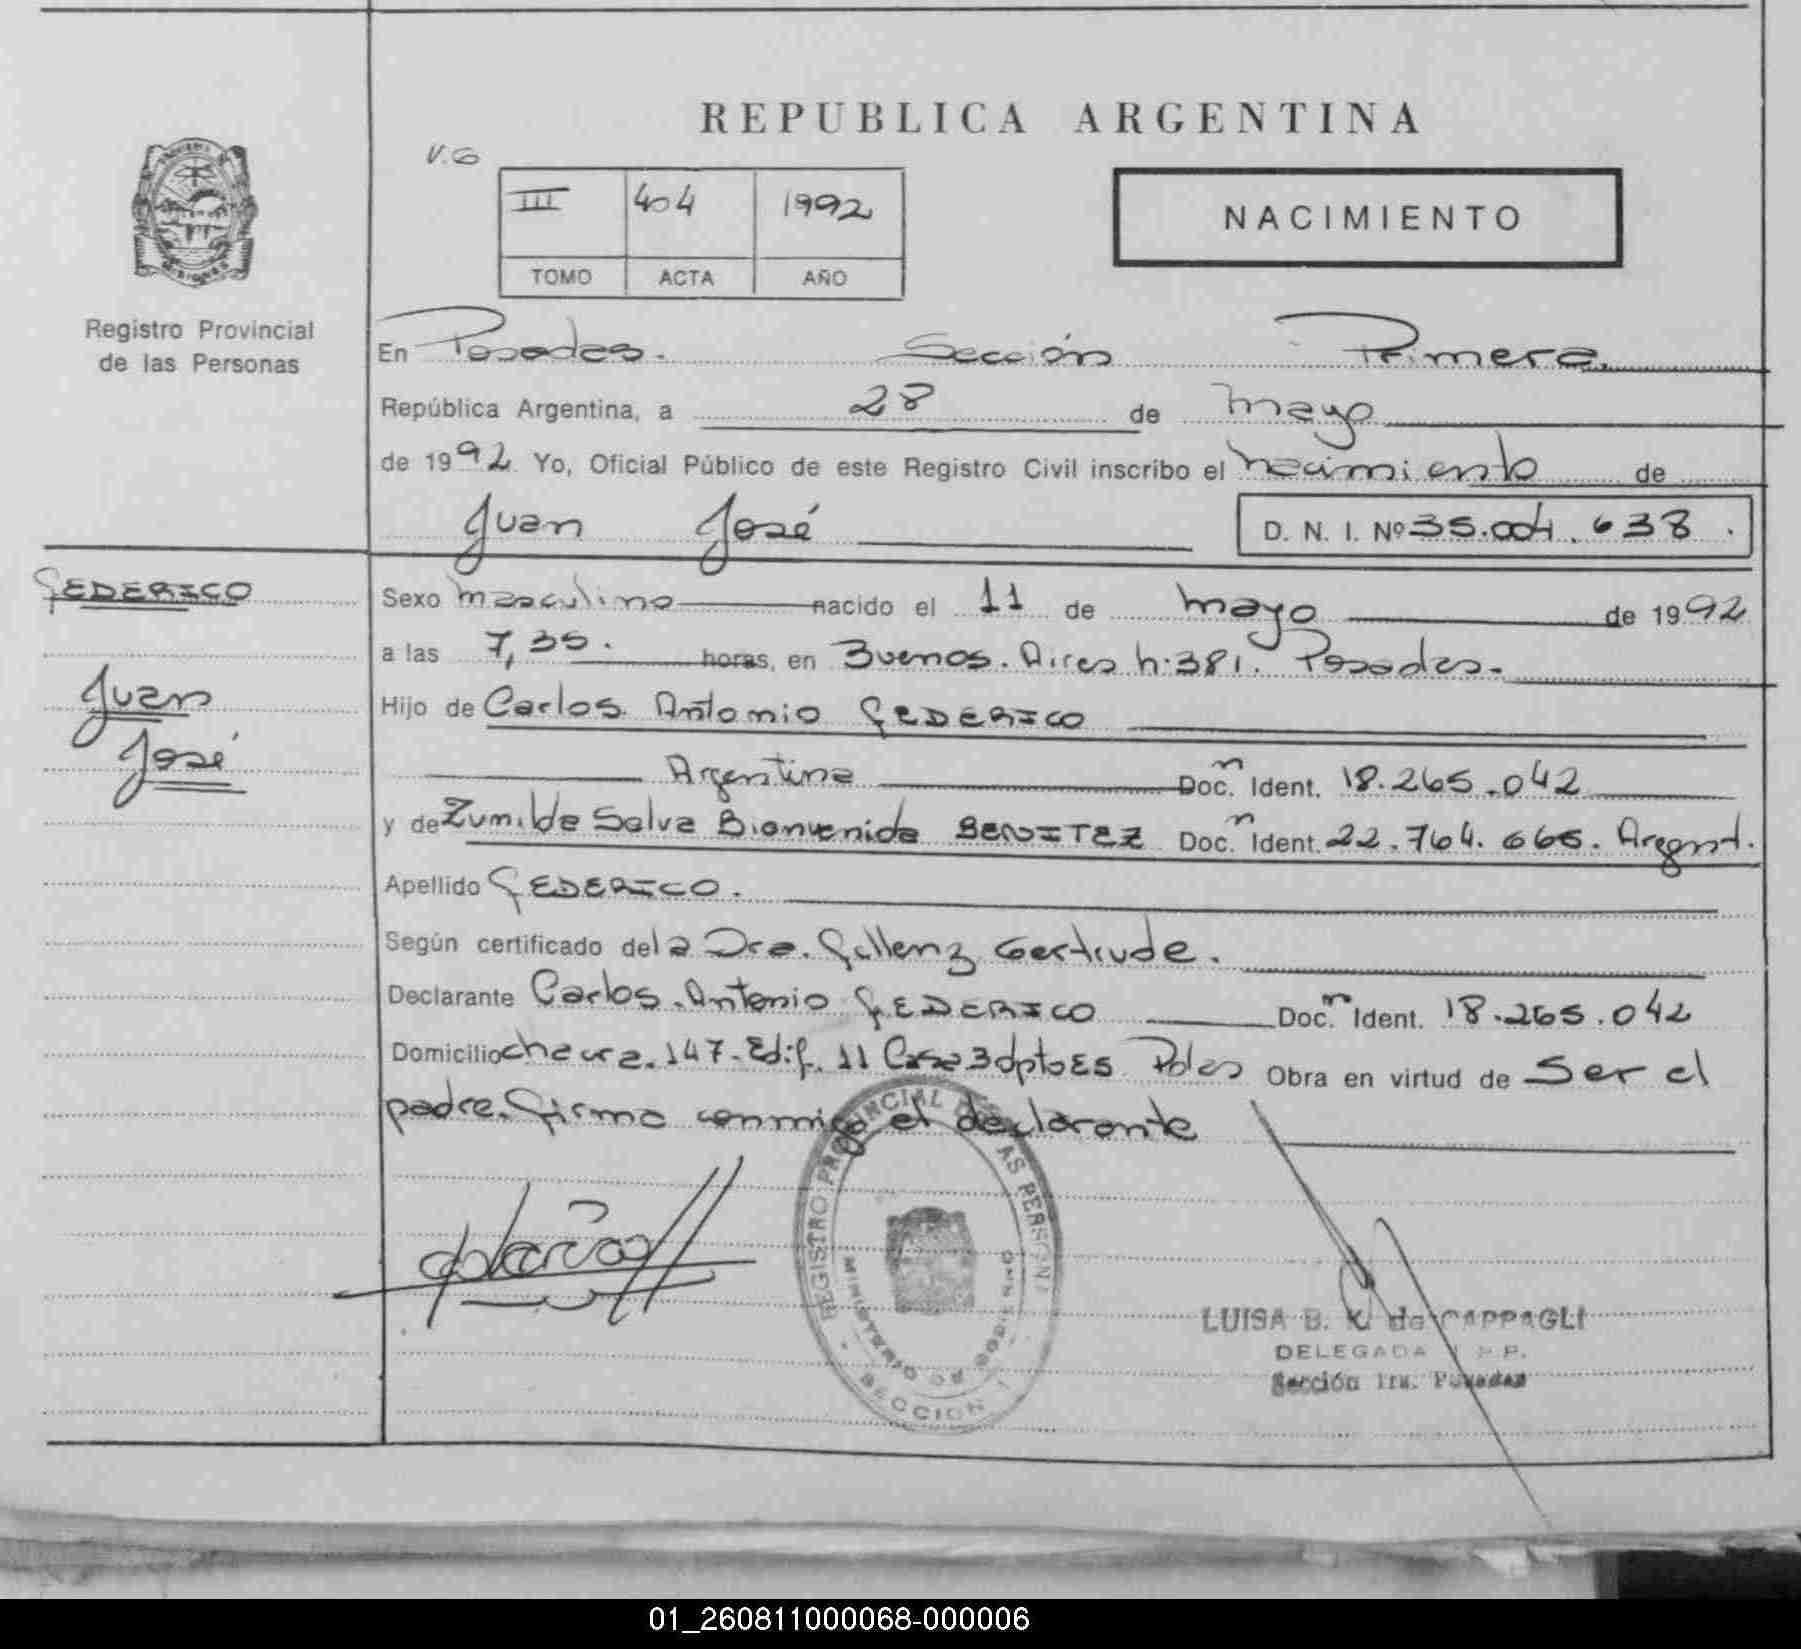 REPUBLICA ARGENTINA
V.G
III 404 1992
TOMO ACTA AÑO
NACIMIENTO
MISIONES
Registro Provincial
de las Personas
En Posadas. Sección Primera.
República Argentina, a 28 de mayo
de 1992 Yo, Oficial Público de este Registro Civil inscribo el nacimiento de
Juan José
D. N. I. Nº 35.004.638.
FEDERICO
Juan
José
Sexo masculino nacido el 11 de mayo de 1992
a las 7,35. horas, en Buenos. Aires n:381. Posadas.
Hijo de Carlos Antonio FEDERICO
Argentina Doc.n Ident. 18.265.042
y de Zunilda Salva Bienvenida BENITEZ Doc.n Ident. 22.764.665. Argent.
Apellido FEDERICO.
Según certificado del a Dra. Gertrude.
Declarante Carlos. Antonio FEDERICO Doc.n Ident. 18.265.042
Domicilio chacra. 147. Edif. 11 Casa 3 dpto E5 Pdas Obra en virtud de Ser el
padre. firma conmigo el declarante
REGISTRO PROVINCIAL DE LAS PERSONAS
MINISTERIO DE GOBIERNO
SECCION 1
LUISA B. K. de CAPPAGLI
DELEGADA R.P.P.
Sección 1ra. Posadas
01_260811000068-000006